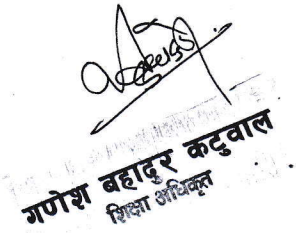 गणेश बहादुर कटुवाल
शिक्षा अधिकृत